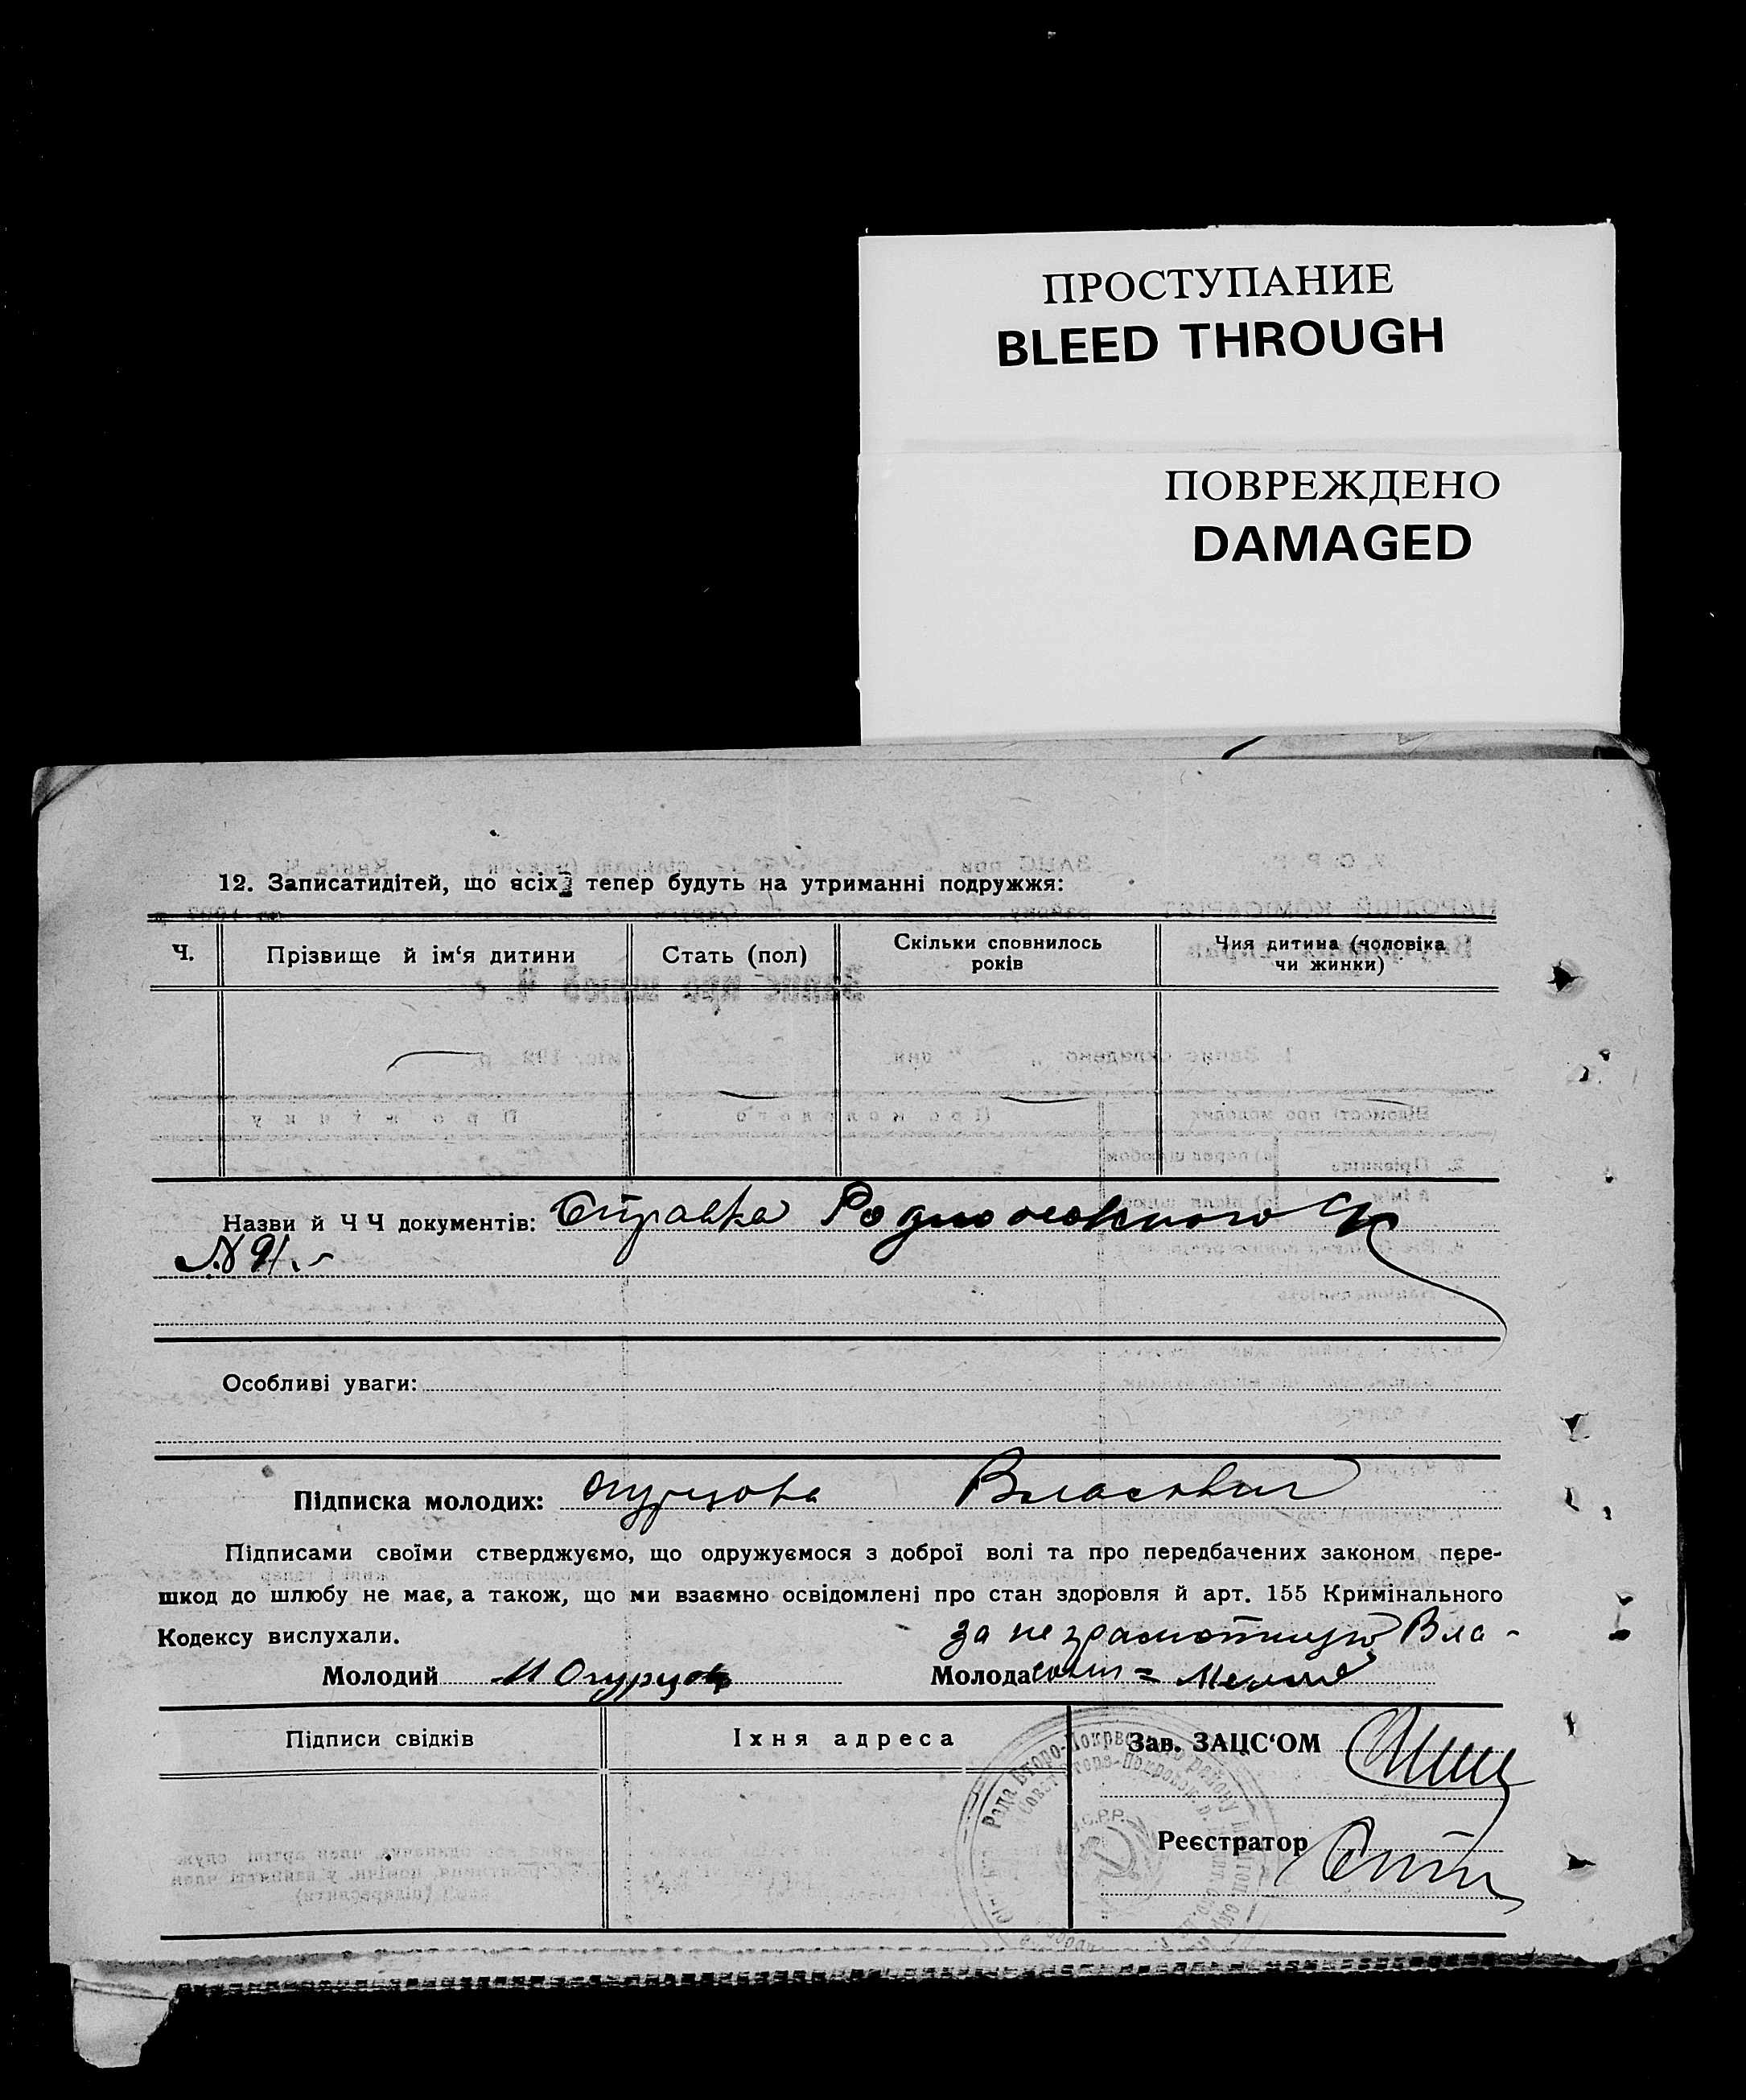 ПРОСТУПАНИЕ
BLEED THROUGH
ПОВРЕЖДЕНО
DAMAGED
12. Записатидітей, що всіх тепер будуть на утриманні подружжя:
Ч. Прізвище й ім‘я дитини Стать (пол) Скільки сповнилось років Чия дитина (чоловіка чи жинки)
Назви й Ч Ч документів: Справка
№ 91.
Особливі уваги:
Підписка молодих: Огурцова Власовой
Підписами своїми стверджуємо, що одружуємося з доброї волі та про передбачених законом пере-
шкод до шлюбу не має, а також, що ми взаємно освідомлені про стан здоровля й арт. 155 Кримінального
Кодексу вислухали.
за неграмотную Вла-
Молодий И Огурцов Молода
Підписи свідків Їхня адреса Зав. ЗАЦС‘ОМ
Реєстратор